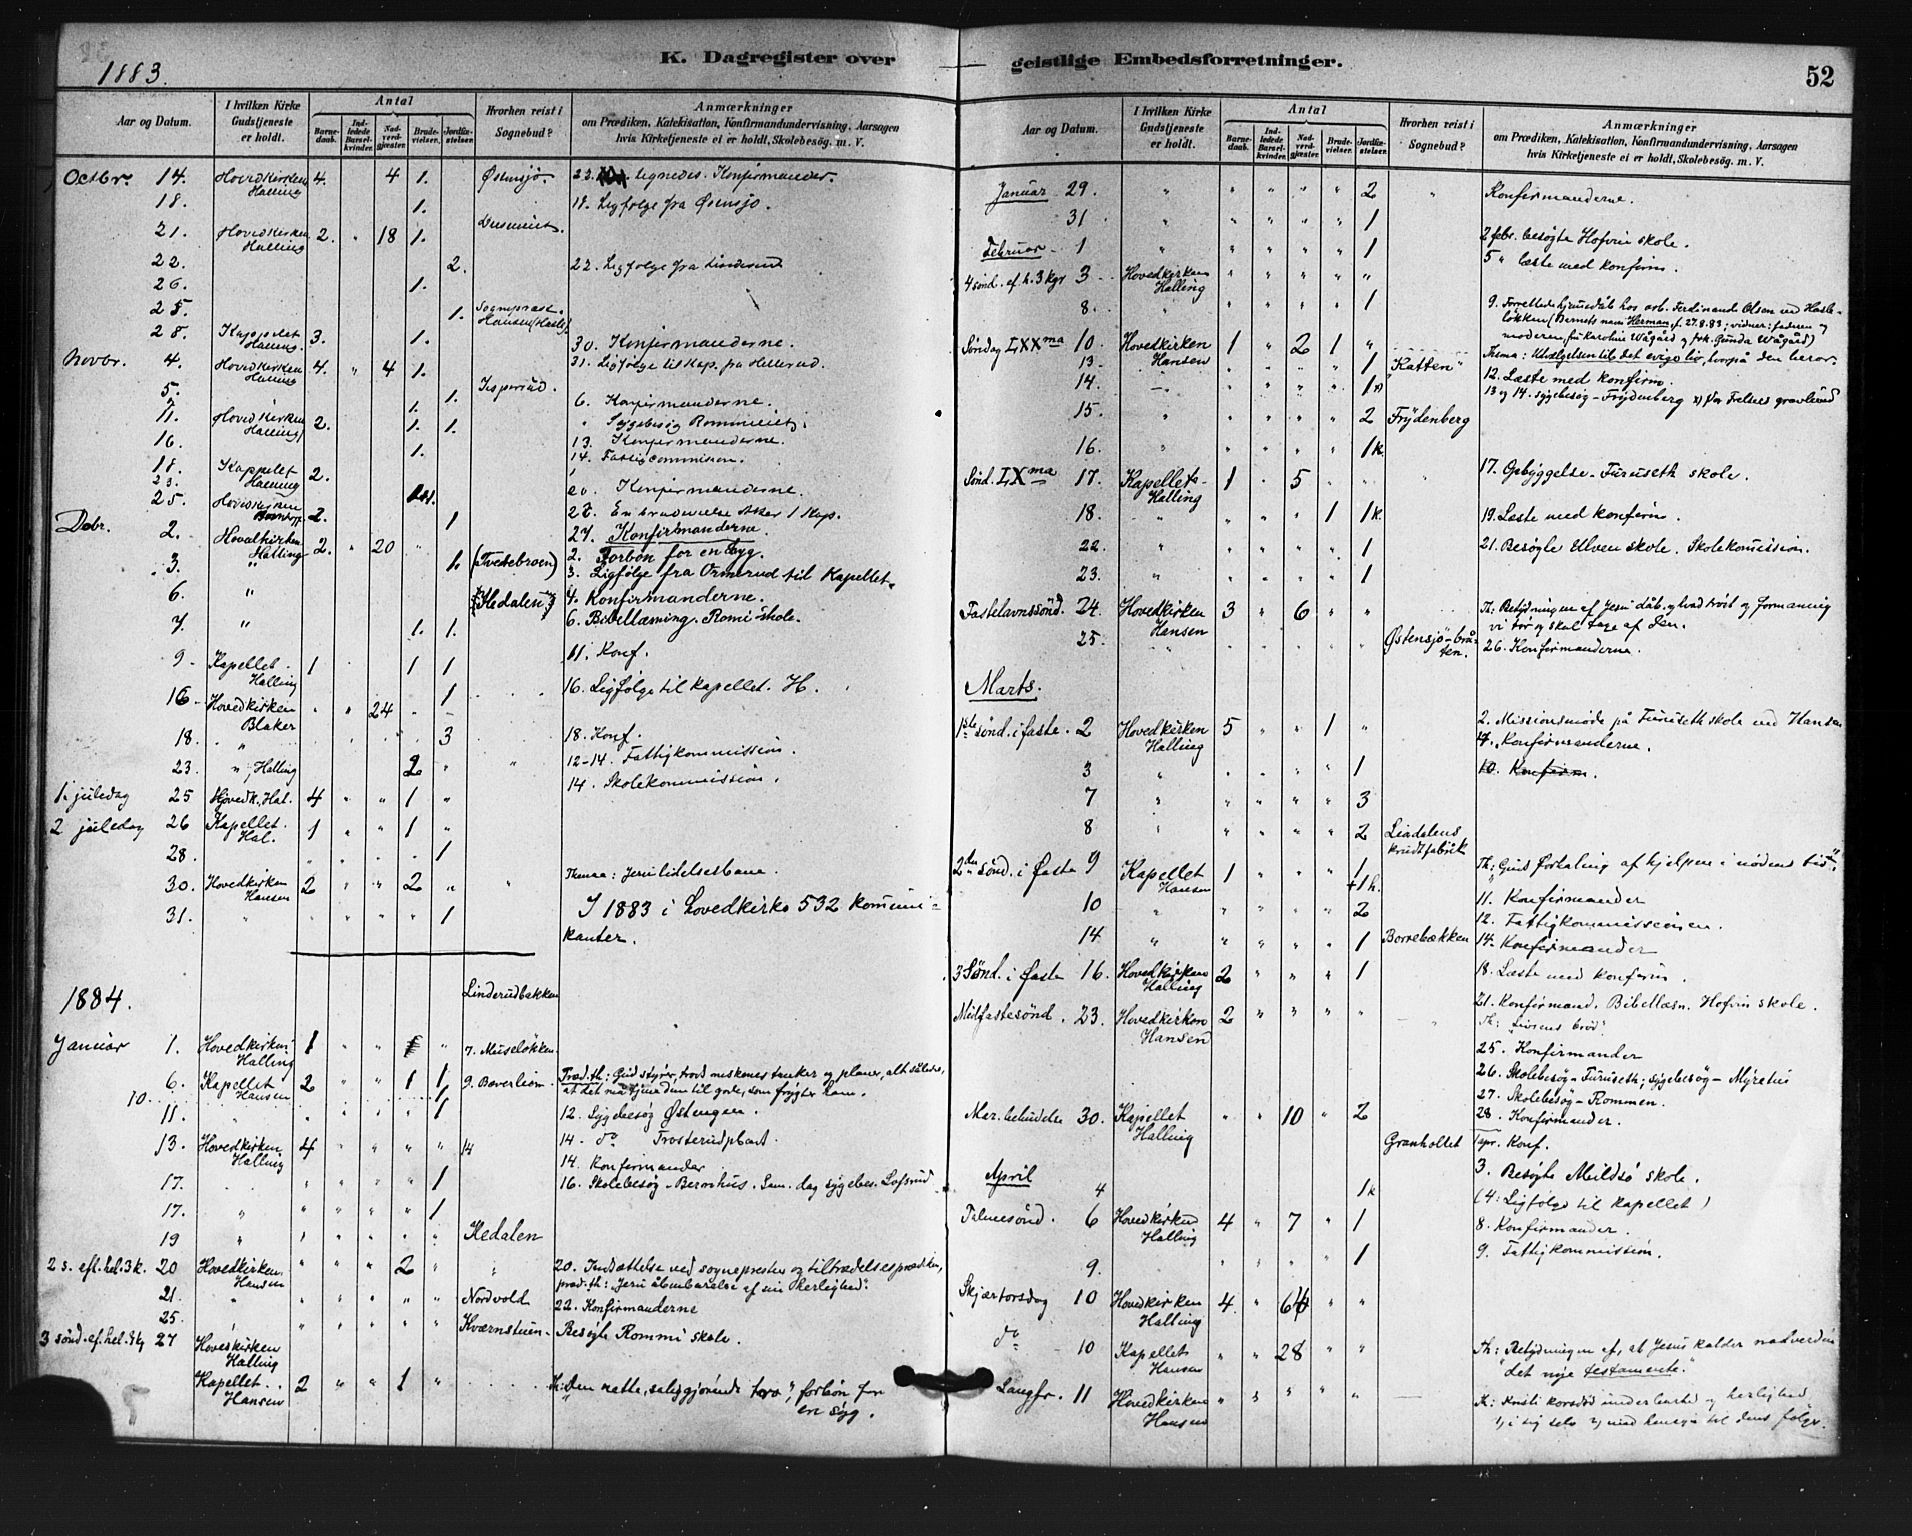 K. Dagregister over
1883.
Aar og Datum.
I hvilken Kirke Gudstjeneste er holdt.
Antal
Barne-daab.
Ind-ledede Barsel-kvinder.
Nad-verd-gjæster.
Brude-vielser.
Jordfæ-stelser.
Hvorhen reist i Sognebud?
Anmærkninger
om Prædiken, Katekisation, Konfirmandundervisning, Aarsagen
hvis Kirketjeneste ei er holdt, Skolebesøg. m. V.
Octbr. 14. Hovedkirken Halling 4. 4 1. Østensjø. 22. Konfirmander.
18. 1. 18. Ligfølge fra Østensjø.
21. Hovedkirken Halling 2. " 18 1.
22. 2. 22. Ligfølge fra Linderud
26. 1.
25. 1. Sogneprest Hansen (Hasle)
28. Kappelet Halling 3. 1. 30. Konfirmanderne.
Novbr. 4. Hovedkirken Halling 4. " 4 1. 31. Ligfølge til Kap. fra Hellerud.
5. 1. Jesperud. 6. Konfirmanderne.
11. Hovedkirken Halling 2. 1. 1. " Sygebesøg Rommeiet.
16. 1. 13. Konfirmanderne.
14. Fattigcommission.
18. Kappelet Halling 2.
23. 20. Konfirmanderne.
25. Hovedkirken 2.
27. Konfirmanderne.
Debr. 2. Hovedkirken Halling 2. " 20 " 2. Forbøn for en syg.
3. " 1. (Tvetebroen) 3. Ligfølge fra Ormerud til Kapellet.
6. " (Hedalen) 4. Konfirmanderne.
7. " 1. 1. 6. Bibellæsning. Romi skole.
9. Kapellet. Halling 1 1 1 11. Konf.
16. Hovedkirken Blaker " 24 1 16. Ligfølge til kapellet. H.
18. " 3 18. Konf.
23. " Halling 2 " " 12-14. Fattigkommission.
14. Skolekommission.
1. juledag 25 Hovedk. Hal. 4 " " 1 "
2 juledag 26 Kapellet. Hal. 1 " " 1 "
28. " " " 1
30. Hovedkirken Hansen 2 " " 2 " " Thema: Jesu lidelsesbane.
31. " " " " 1 I 1883 i hovedkirke 532 kommuni-
kanter.
1884.
Linderudbakken
Januar 1. Hovedkirken Halling 1 " " " 7. Museløkken
6. Kapellet Hansen 2 " " 1 1 9. Bøverliem. Præd. th: Gud styrer, trods meskenes tanker og planer, alt således,
at det må tjene dem til gode, som frygter ham.
10. 1
11. " " " 1 12. Sygebesøg Østengen.
13. Hovedkirken Halling 4 " " " " 14 14. do Trosterudplads.
14. Konfirmander
17. " " " 1 16. Skolebesøg - Bernhus. Sam. dag sygebes. Lofsrud
17. " " " " 1
19 " Hedalen
2 s. eft. hel. 3 k. 20 Hovedkirken. Hansen " " " 2 " " 20. Indsættelse ved sogneprester og tiltrædelsesprædiken,
præd. th: Jesu åbenbarelse af sin herlighed.
21. " Nordvold 22. Konfirmanderne
25. " Kværnstuen Besøgte Rommi skole.
3 sønd. ef. hel. 3 k 27 Hovedkirken Halling
Kapellet. Hansen 2 " " 1 " th: "Den rette, saliggjørende tro", forbøn for
en syg.
geistlige Embedsforretninger.
52
Aar og Datum.
I hvilken Kirke Gudstjeneste er holdt.
Antal
Barne-daab.
Ind-ledede Barsel-kvinder.
Nad-verd-gjæster.
Brude-vielser.
Jordfæ-stelser.
Hvorhen reist i Sognebud?
Anmærkninger
om Prædiken, Katekisation, Konfirmandundervisning, Aarsagen
hvis Kirketjeneste ei er holdt, Skolebesøg. m. V.
Januar 29. " " " " " 2 " Konfirmanderne.
31 " " " " " 1
Februar 1 " " " " " 1 2 febr. besøgte Hofvin skole.
4 sønd. ef. h. 3 kgr 3 Hovedkirken Halling " " " " " 5 " læste med konfirm.
8. " " " " 1 9. Forrettede hjemedåb hos arb. Ferdinand Olsen ved Hasle-
løkken (Barnets navn Herman, f. 27.8.83; vidner: faderen og
moderen, fru Karoline Wågård og frk. Gunda Wågård)
Søndag LXXma 10. Hovedkirken Hansen 1 " 2 1 " Thema: Udvælgelsen til det evige liv, hvorpå den beror.
13. 1 "Katten" 12. Læste med konfirm.
14. " 1 x) 13 og 14. sygebesøg - Frydenberg x) Vor Frelsers gravlund
15. " 2 Frydenberg
16. " 1 k.
Sønd. LXma 17. Kapellet Halling 1 " 5 " 17. Opbyggelse - Furuseth skole.
18. " " " " 1 1 k. 19. Læste med konfirm.
22. " " " " " 1 21. Besøgte Ulven skole. Skolekomission.
23. " " " " " 1
Fastelavnssønd. 24. Hovedkirken Hansen 3 " 6 " " Th: Betydningen af Jesu dåb og hvad trøst og formaning
vi tør og skal tage af den.
25. " Østensjø-bråten. 26. Konfirmanderne.
Marts.
1ste sønd. i faste. 2 Hovedkirken Halling 5 " " 1 " 2. Missionsmøde på Furuseth skole ved Hansen
4. Konfirmanderne.
3 " " " " " 1 10. Konfirm.
7 " " " " " 3
8 " " " " " 2 Leirdalens krudtfabrik
2den sønd. i faste 9 Kapellet Hansen 1 " " " 1 +1 h. Th: Guds forhaling af hjelpen i nødens tid.
11. Konfirmander
10 " " " " " 2 12. Fattigkommissionen.
14. " " " " " 1 Borrebækken 14. Konfirmander
3 Sønd. i faste 16. Hovedkirken Halling 2 " " " 1 18. Læste med konfirm.
21. Konfirmand. Bibellæsn. Hofvin skole.
Midfastesønd. 23. Hovedkirken Hansen 2 " " " " " Th: "Livsens brød"
25. Konfirmander
26. Skolebesøg - Furuseth; sygebesøg - Myretus
27. Skolebesøg - Rommen.
Mar. bebudelse 30. Kapellet Halling " " 10 " 2 28. Konfirmander.
Granholtet 1 apr. Konf.
3. Besøgte Meildsø skole.
April
4 1 k (4: Ligfølge til kapellet)
Palmesønd. 6 Hovedkirken Halling 4 " 7 " 1 8. Konfirmander.
9. " " " " 1 9. Fattigkommission.
Skjærtorsdag 10 Hovedkirken Halling 4. " 64 " "
do 10 Kapellet Hansen " " 28 " " Th: Betydningen af, at Jesus kalder nadverden
"det nye testamente."
Langfr. 11 Hovedkirken Hansen " " " " " Th: Kristi korsdød under hærlighed